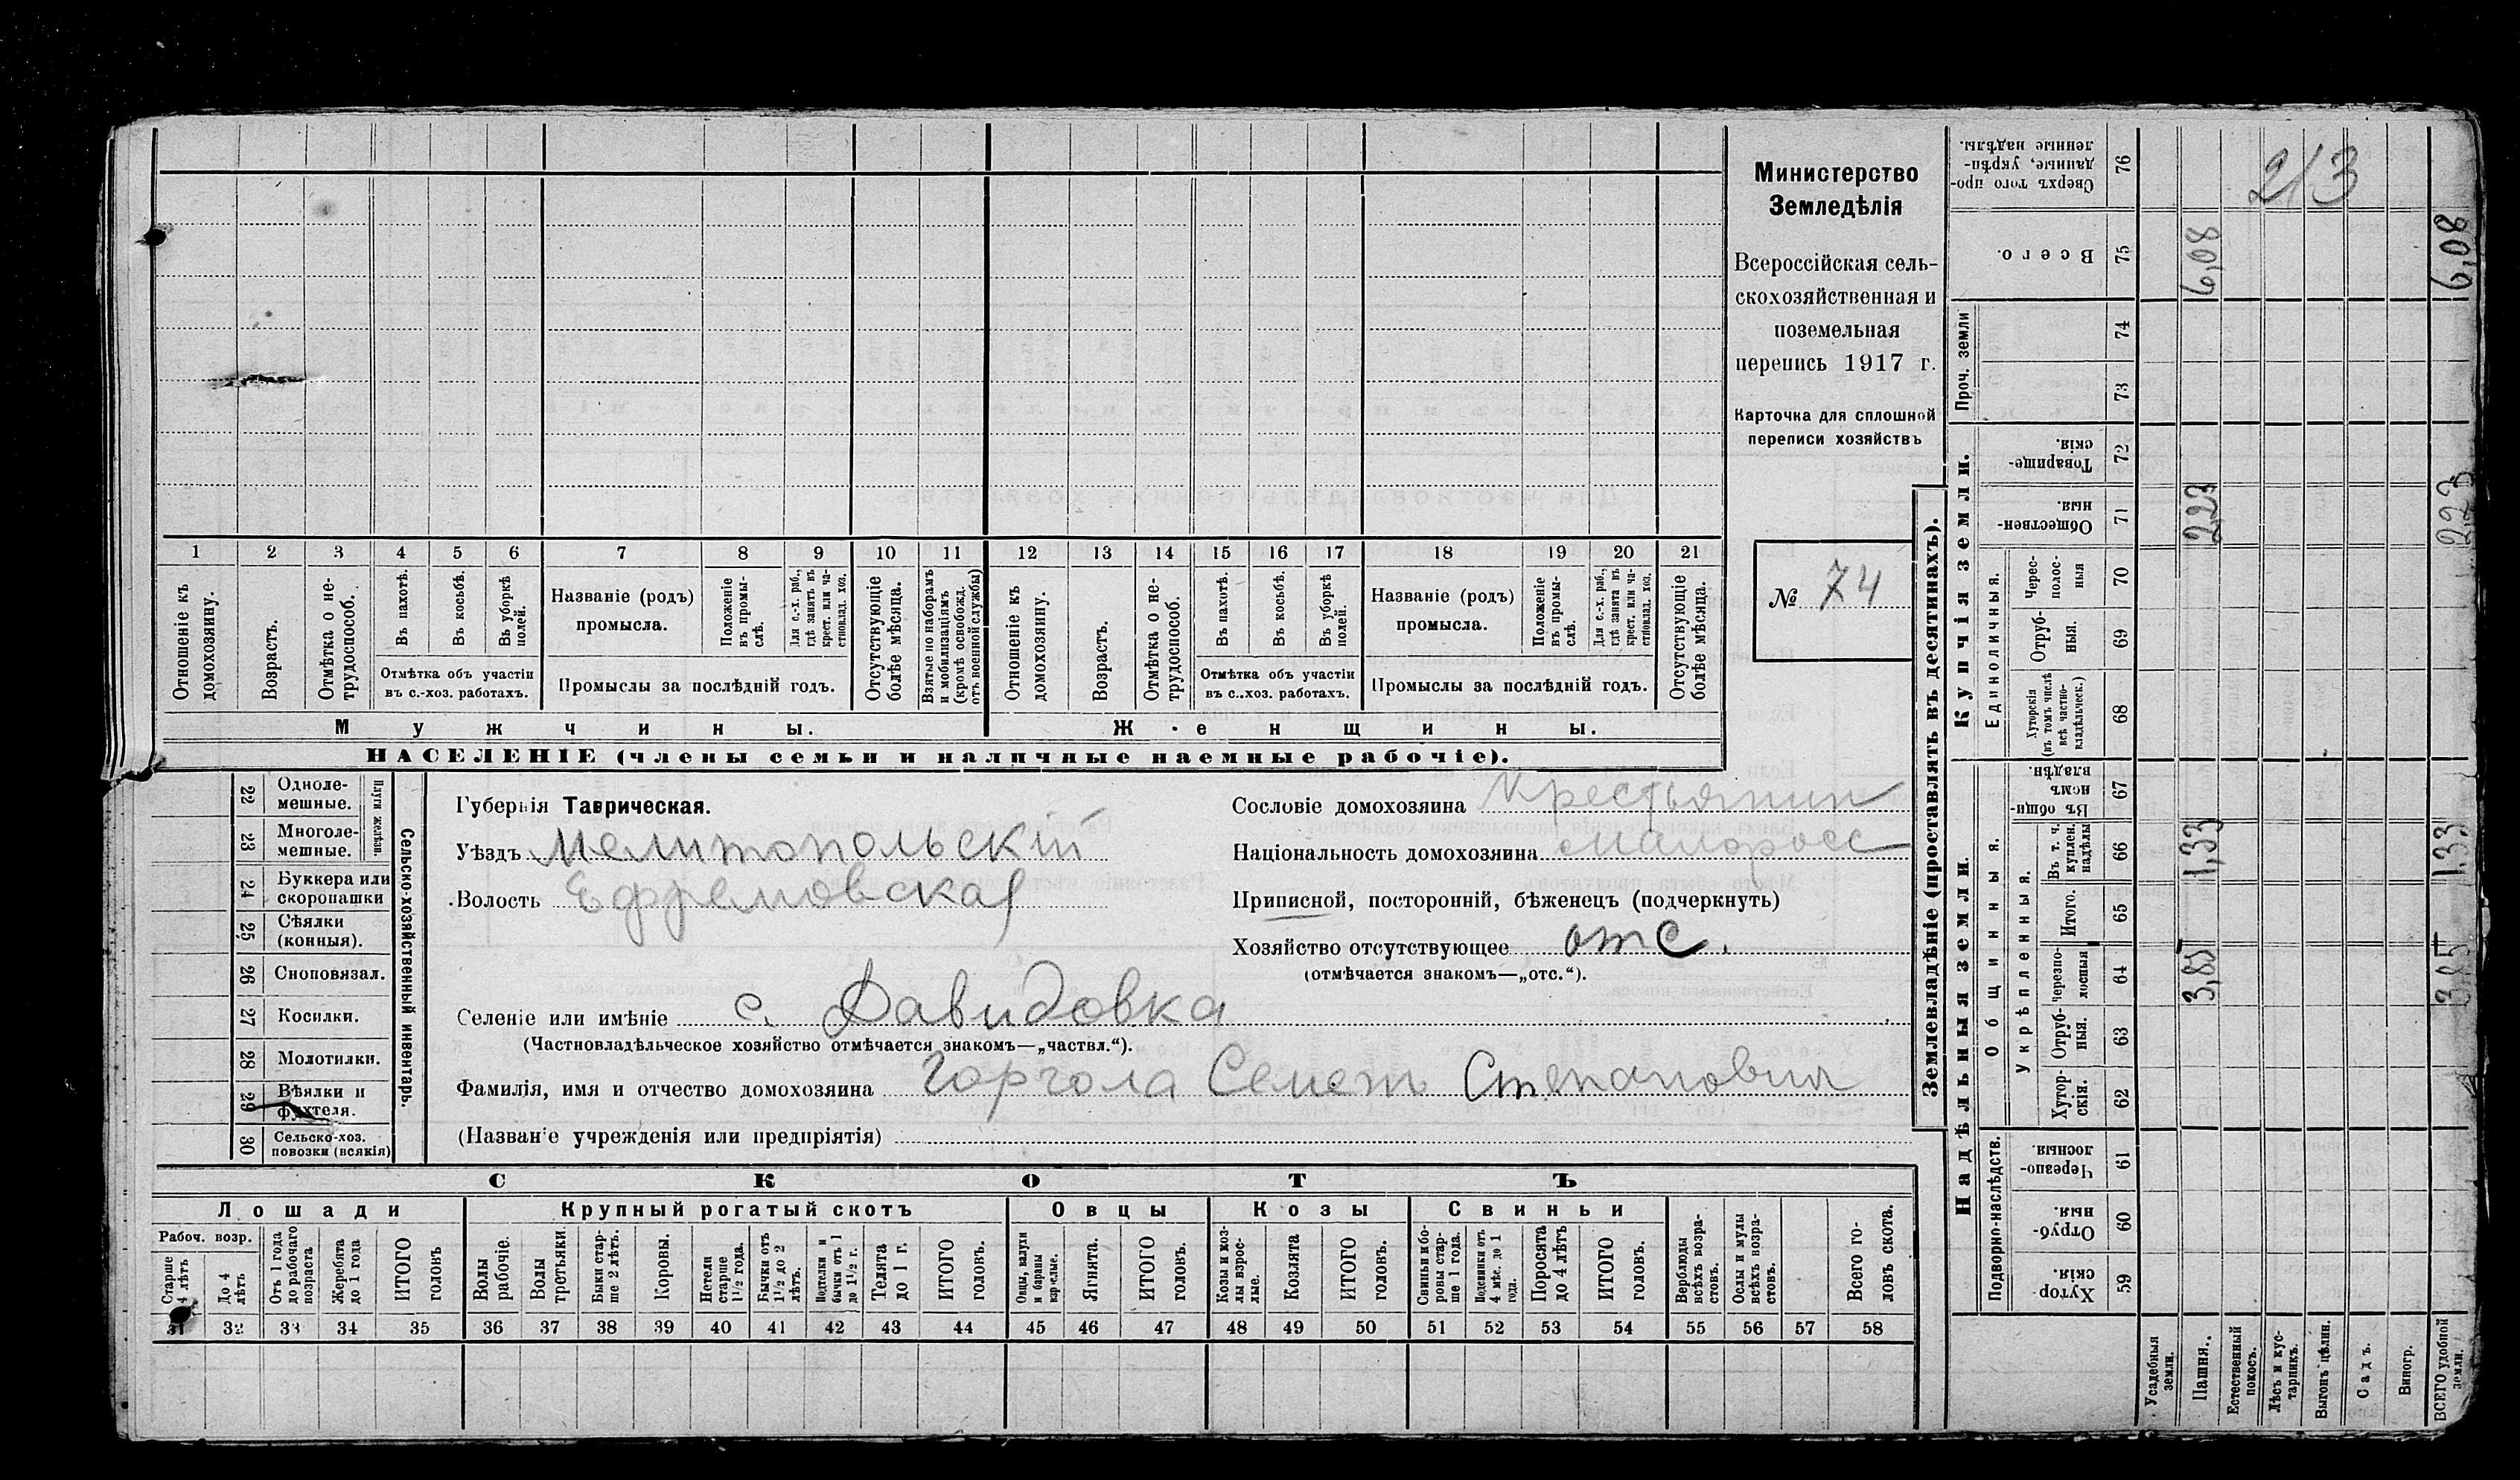 Министерство
Земледѣлія
Всероссійская сель-
скохозяйственная и
поземельная
перепись 1917 г.
Карточка для сплошной
переписи хозяйствъ
№ 74
1 2 3 4 5 6 7 8 9 10 11 12 13 14 15 16 17 18 19 20 21
Отношеніе къ домохозяину.
Возрастъ.
Отмѣтка о не-трудоспособ.
Въ пахотѣ.
Въ косьбѣ.
Въ уборкѣ полей.
Отмѣтка объ участіи
въ с.-хоз. работахъ.
Названіе (родъ)
промысла.
Положеніе въ промы-слѣ.
Для с.-х. раб., гдѣ занятъ въ крест. или ча-стновлад. хоз.
Промыслы за послѣдній годъ.
Отсутствующіе болѣе мѣсяца.
Взятые по наборамъ и мобилизаціямъ (кромѣ освобожд. отъ военной службы)
Отношеніе къ домохозяину.
Возрастъ.
Отмѣтка о не-трудоспособ.
Въ пахотѣ.
Въ косьбѣ.
Въ уборкѣ полей.
Отмѣтка объ участіи
въ с.-хоз. работахъ.
Названіе (родъ)
промысла.
Положеніе въ промы-слѣ.
Для с.-х. раб., гдѣ занята въ крест. или ча-стновлад. хоз.
Промыслы за послѣдній годъ.
Отсутствующіе болѣе мѣсяца.
Мужчины.
Женщины.
НАСЕЛЕНІЕ (члены семьи и наличные наемные рабочіе).
Сельско-хозяйственный инвентарь.
Плуги желѣзн.
22 Одноле-мешные.
23 Многоле-мешные.
24 Буккера или скоропашки
25 Сѣялки (конныя).
26 Сноповязал.
27 Косилки.
28 Молотилки.
29 Вѣялки и фухтеля.
30 Сельско-хоз. повозки (всякія)
Губернія Таврическая.
Уѣздъ Мелитопольскій
Волость Ефремовская
Сословіе домохозяина Крестьянин
Національность домохозяина Малоросс
Приписной, посторонній, бѣженецъ (подчеркнуть)
Хозяйство отсутствующее отс.
(отмѣчается знакомъ—„отс.“).
Селеніе или имѣніе с. Давидовка
(Частновладѣльческое хозяйство отмѣчается знакомъ—„частвл.“).
Фамилія, имя и отчество домохозяина Горгола Семен Степанович
(Названіе учрежденія или предпріятія)
СКОТЪ
Лошади Крупный рогатый скотъ Овцы Козы Свиньи
Рабоч. возр.
Старше 4 лѣтъ
До 4 лѣтъ
Отъ 1 года до рабочаго возраста
Жеребята до 1 года
ИТОГО головъ
Волы рабочіе.
Волы третьяки.
Быки стар-ше 2 лѣтъ.
Коровы.
Нетели старше 1½ года.
Бычки отъ 1½ до 2 лѣтъ.
Подтелки и бычки отъ 1 до 1½ г.
Телята до 1 г.
ИТОГО головъ.
Овцы, валухи и бараны взрослые.
Ягнята.
ИТОГО головъ.
Козы и коз-лы взрос-лые.
Козлята
ИТОГО головъ.
Свиньи и бо-ровы стар-ше 1 года.
Подсвинки отъ 4 мѣс. до 1 года.
Поросята до 4 лѣтъ
ИТОГО головъ.
Верблюды всѣхъ возра-стовъ.
Ослы и мулы всѣхъ возра-стовъ.
Всего го-ловъ скота.
31 32 33 34 35 36 37 38 39 40 41 42 43 44 45 46 47 48 49 50 51 52 53 54 55 56 57 58
Землевладѣніе (проставлять въ десятинахъ).
Надѣльныя земли.
Купчія земли.
Проч. земли
Подворно-наслѣдств.
Общинныя.
Укрѣпленныя.
Единоличныя.
76 Сверхъ того про-данные, укрѣп-ленные надѣлы.
75 Всего. 6,08 6,08
74
73
72 Товарище-скія.
71 Обществен-ныя. 2,23 2,23
70 Черес-полос-ныя
69 Отруб-ныя.
68 Хуторскія (въ томъ числѣ всѣ частно-владѣльческ.)
67 Въ общи-номъ владѣн.
66 Въ т. ч. куплен. надѣлы 1,33 1,33
65 Итого.
64 Черезпо-лосныя 3,85 3,85
63 Отруб-ныя.
62 Хутор-скія.
61 Черезпо-лосныя
60 Отруб-ныя.
59 Хутор-скія.
Усадебныя земли.
Пашня.
Естественный покосъ.
Лѣсъ и кус-тарникъ.
Выгонъ цѣлин.
Садъ.
Виногр.
ВСЕГО удобной земли.
213